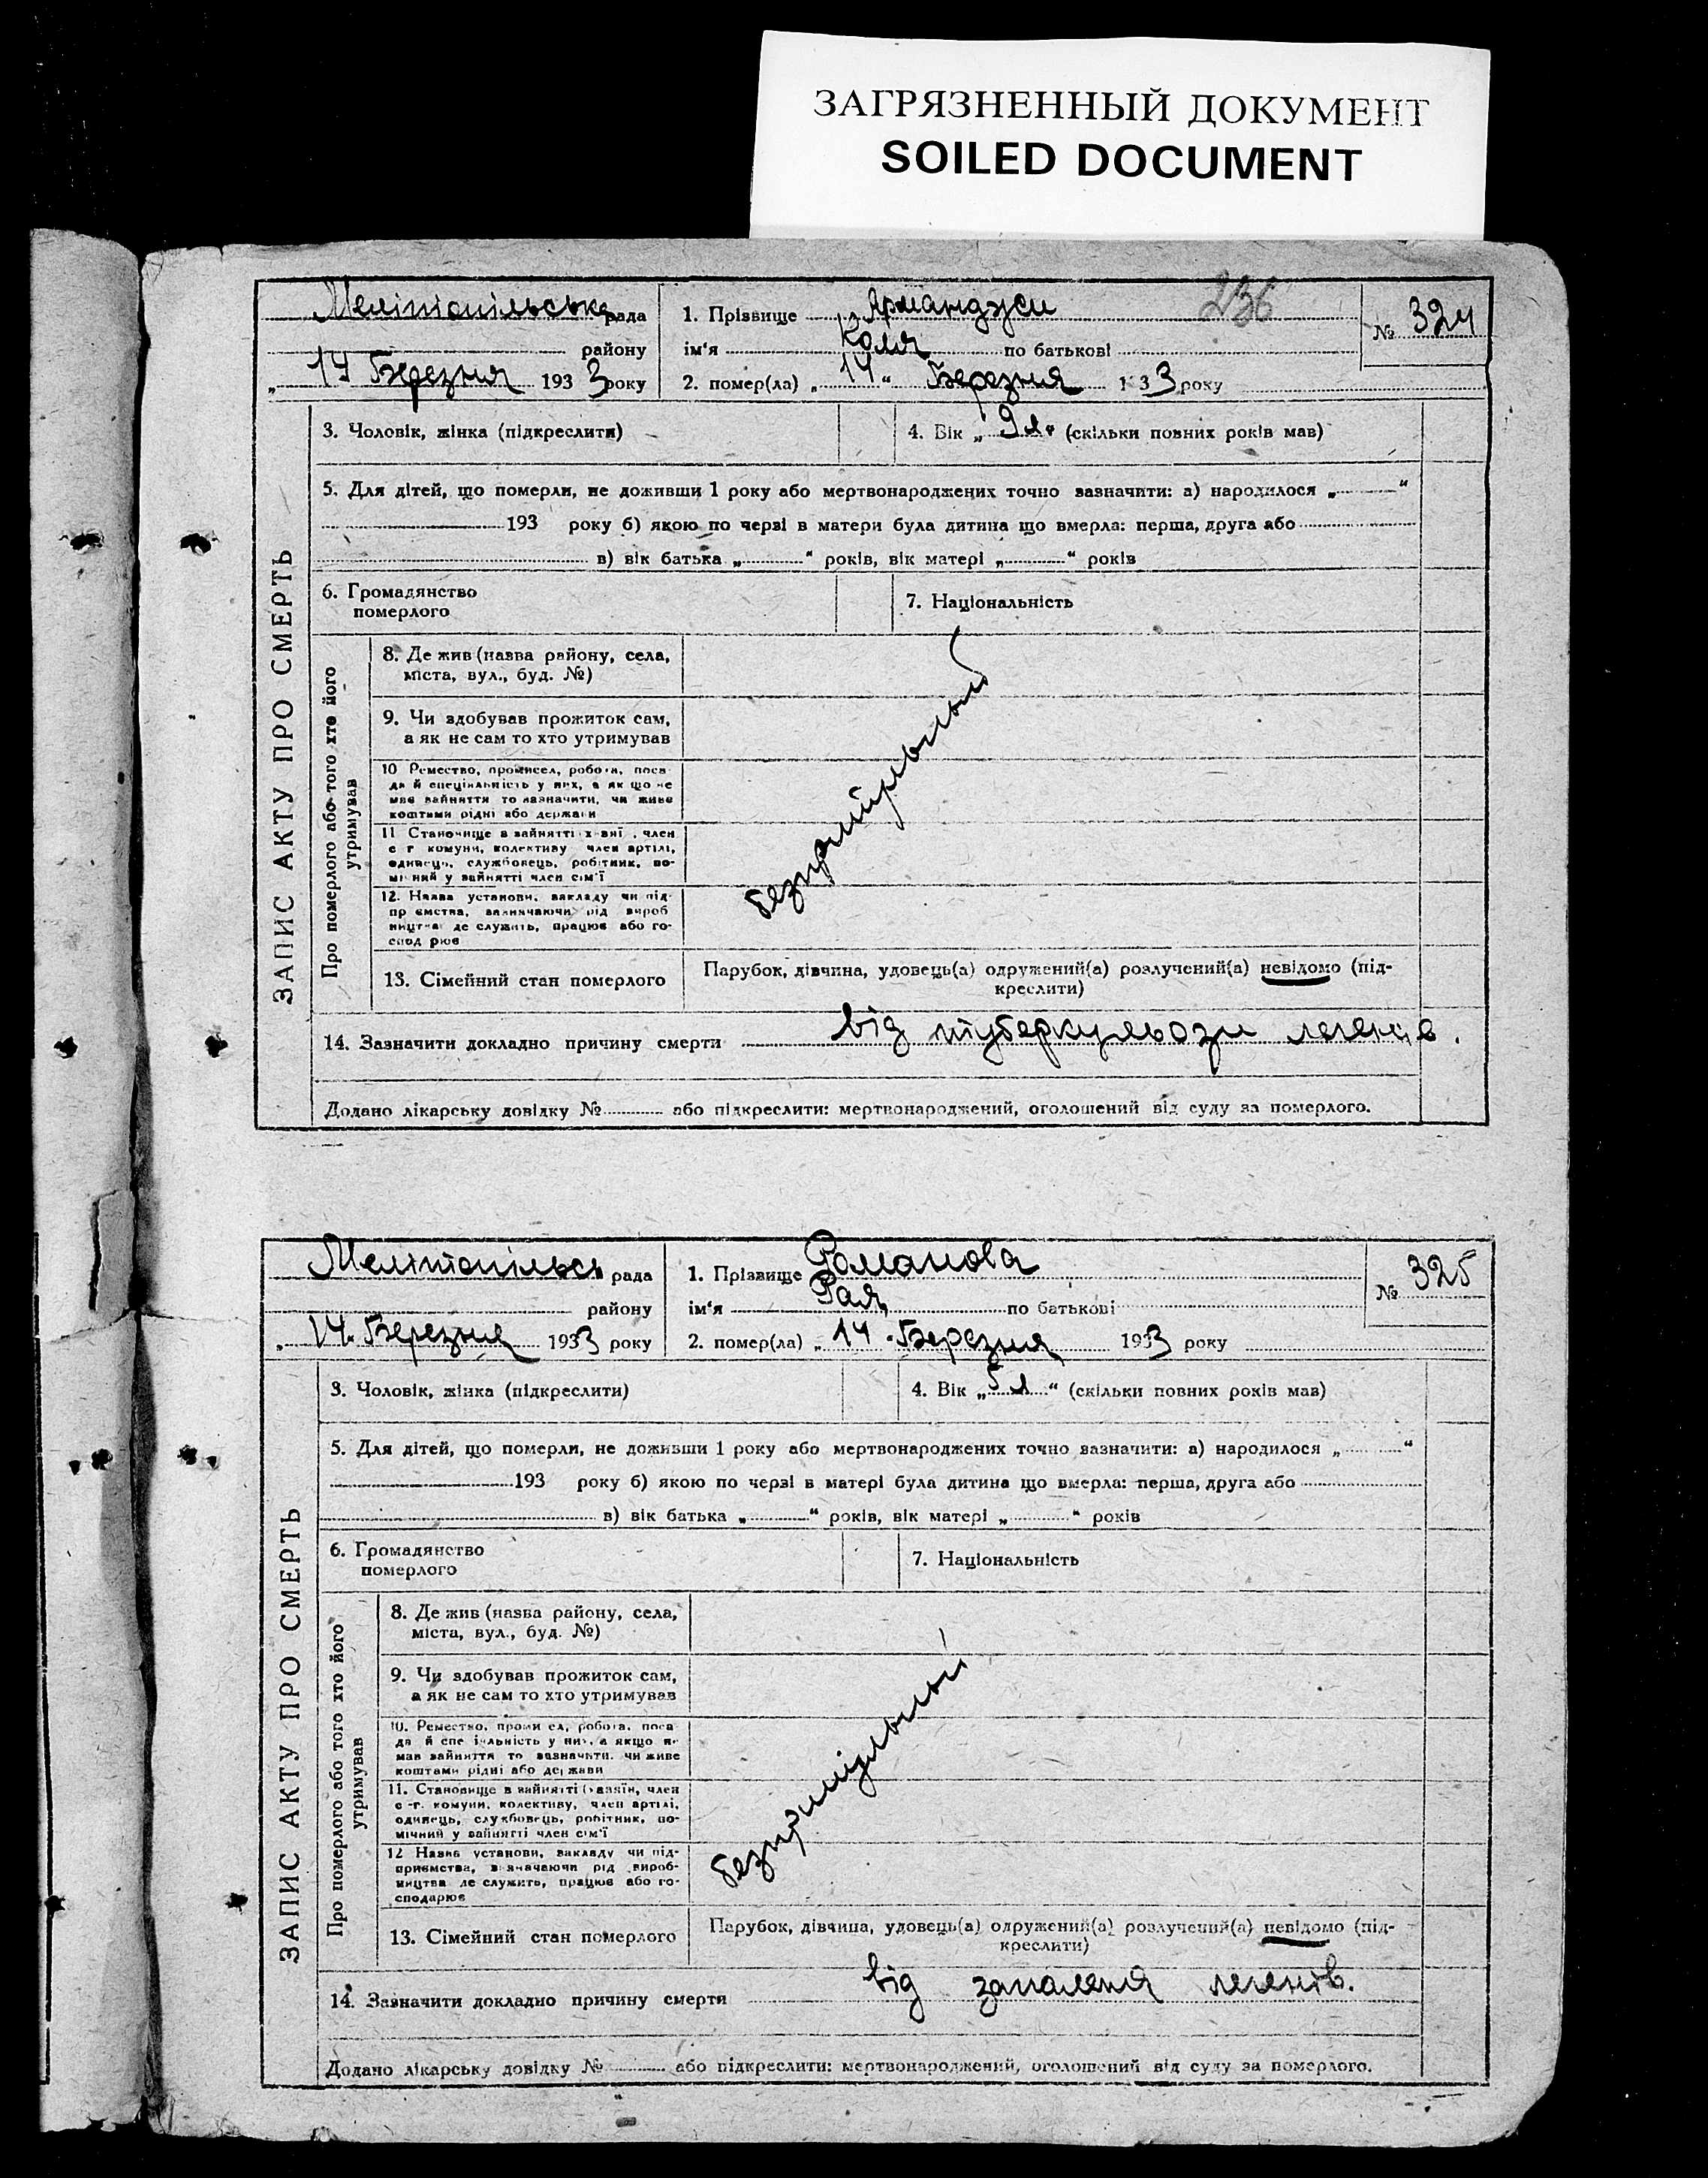 ЗАГРЯЗНЕННЫЙ ДОКУМЕНТ
SOILED DOCUMENT
236
Мелітопільська рада
району
„ 14 Березня 1933 року
1. Прізвище Армянджи
ім'я Коля по батькові
2. помер(ла) „ 14 “ Березня 1933 року
№ 324
ЗАПИС АКТУ ПРО СМЕРТЬ
3. Чоловік, жінка (підкреслити)
4. Вік „ 9 л. (скільки повних років мав)
5. Для дітей, що померли, не доживши 1 року або мертвонароджених точно зазначити: а) народилося „ “
193 року б) якою по черзі в матери була дитина що вмерла: перша, друга або
в) вік батька „ “ років, вік матері „ “ років
6. Громадянство
померлого
7. Національність
Про померлого або того хто його
утримував
8. Де жив (назва району, села,
міста, вул., буд. №)
9. Чи здобував прожиток сам,
а як не сам то хто утримував
10 Ремество, промисел, робота, поса
да й спеціяльність у них, а як що не
мав зайняття то зазначити, чи живе
коштами рідні або держави
11 Становище в зайнятті хазяї , член
с г комуни, колективу член артілі,
одинець, службовець, робітник, по-
мічний у зайнятті член сім'ї
12. Назва установи, закладу чи під-
пр ємства, зазначаючи рід вироб
ництва де служить, працює або го-
спод рює
безприйрный
13. Сімейний стан померлого
Парубок, дівчина, удовець(а) одружений(а) розлучений(а) невідомо (під-
креслити)
14. Зазначити докладно причину смерти від туберкульози легенів.
Додано лікарську довідку № або підкреслити: мертвонароджений, оголошений від суду за померлого.
Мелітопільсь рада
району
„ 14. Березня 1933 року
1. Прізвище Романова
ім'я Рая по батькові
2. помер(ла) „ 14 . Березня 1933 року
№ 325
ЗАПИС АКТУ ПРО СМЕРТЬ
3. Чоловік, жінка (підкреслити)
4. Вік „ 5 л “ (скільки повних років мав)
5. Для дітей, що померли, не доживши 1 року або мертвонароджених точно зазначити: а) народилося „ “
193 року б) якою по черзі в матері була дитина що вмерла: перша, друга або
в) вік батька „ “ років, вік матері „ “ років
6. Громадянство
померлого
7. Національність
Про померлого або того хто його
утримував
8. Де жив (назва району, села,
міста, вул., буд. №)
9. Чи здобував прожиток сам,
а як не сам то хто утримував
10. Ремество, проми ел, робота, поса
да й спе іяльність у них, а якщо н
мав зайняття то зазначити, чи живе
коштами рідні або держави
11. Становище в зайнятті (хазяїн, член
с -г. комуни, колективу, член артілі,
одинець, службовець, робітник, по-
мічний у зайнятті член сім'ї
12 Назва установи, закладу чи під-
приємства, зазначаючи рід вироб-
ництва де служить, працює або го-
сподарює
13. Сімейний стан померлого
Парубок, дівчина, удовець(а) одружений(а) розлучений(а) невідомо (під-
креслити)
14. Зазначити докладно причину смерти від запаленя легенів.
Додано лікарську довідку № або підкреслити: мертвонароджений, оголошений від суду за померлого.